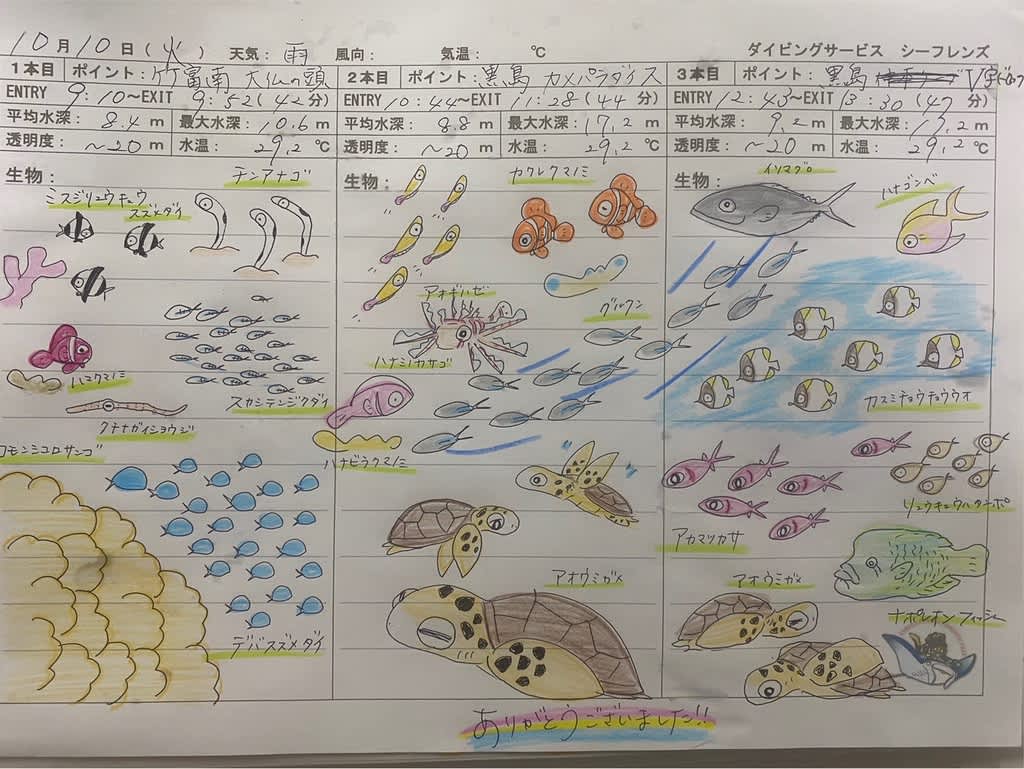 10月10日(火) 天気:雨 風向: 気温: ℃ ダイビングサービス シーフレンズ
1本目 ポイント:竹富南 大仏の頭
ENTRY 9:10〜EXIT 9:52(42分)
平均水深: 8.4 m 最大水深: 10.6 m
透明度: 〜20 m 水温: 29.2 ℃
生物:
チンアナゴ
ミスジリュウキュウ
スズメダイ
ハマクマノミ
スカシテンジクダイ
クチナガイシヨウジ
コモンシコロサンゴ
デバスズメダイ
2本目 ポイント:黒島 カメパラダイス
ENTRY 10:44〜EXIT 11:28(44分)
平均水深: 8.8 m 最大水深: 17.2 m
透明度: 〜20 m 水温: 29.2 ℃
生物:
カクレクマノミ
アオギハゼ
グルクン
ハナミノカサゴ
ハナビラクマノミ
アオウミガメ
3本目 ポイント:黒島 V字ドロップ
ENTRY 12:43〜EXIT 13:30(47分)
平均水深: 9.2 m 最大水深: 13.2 m
透明度: 〜20 m 水温: 29.2 ℃
生物:
イソマグロ
ハナゴンベ
カスミチョウチョウウオ
リュウキュウハタンポ
アカマツカサ
アオウミガメ
ナポレオンフィッシュ
ありがとうございました!!